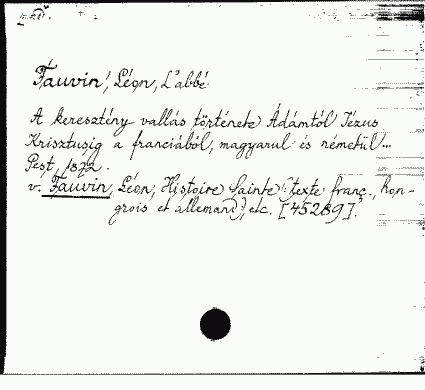 Fauvin, Léon, L'abbé
A keresztény vallás története Ádámtól Jézus
Krisztusig a franciából, magyarul és németül...
Pest, 1872.
v. Fauvin, Léon, Histoire Sainte (texte franç., hon-
grois et allemand), etc. [45289].